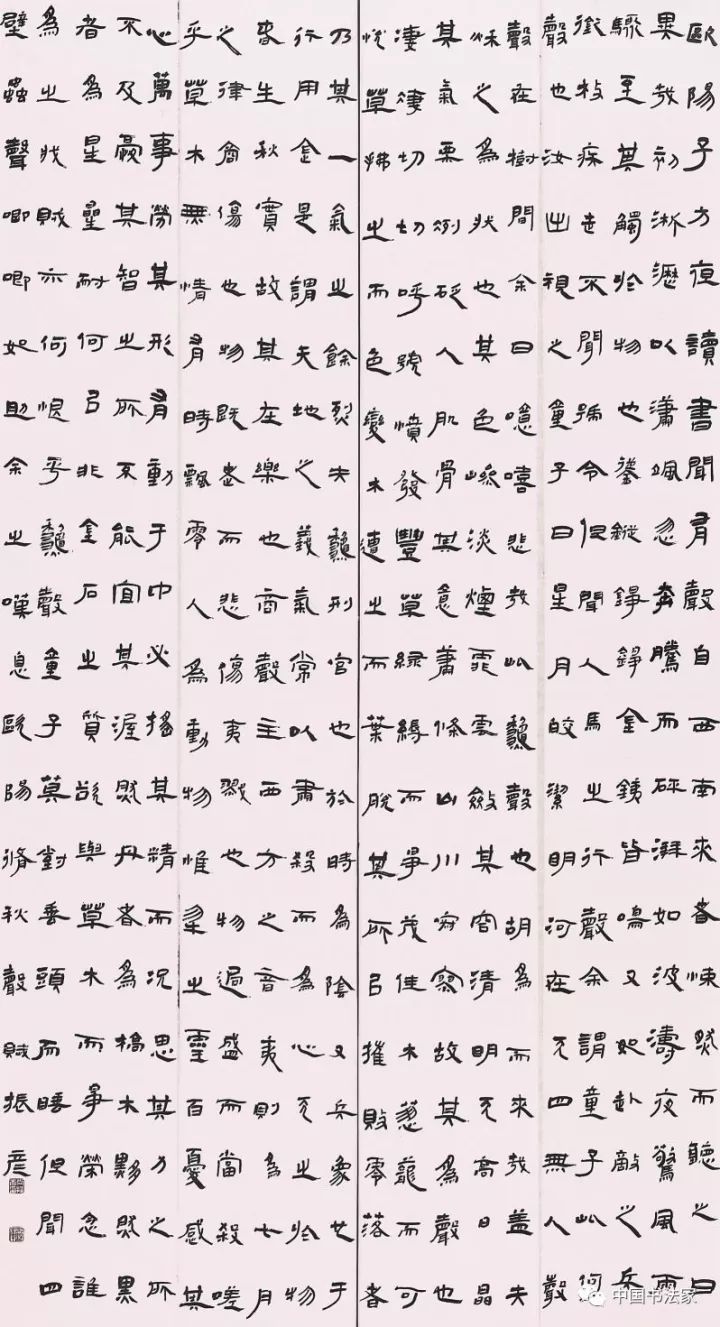 歐陽子方夜讀書聞有聲自西南來者悚然而聽之曰
異哉初淅瀝以瀟颯忽奔騰而砰湃如波濤夜驚風雨
驟至其觸於物也鏦鏦錚錚金鐵皆鳴又如赴敵之兵
銜枚疾走不聞號令但聞人馬之行聲余謂童子此何
聲也汝出視之童子曰星月皎潔明河在天四無人聲
聲在樹間余曰噫嘻悲哉此秋聲也胡為而來哉蓋夫
秋之為狀也其色慘淡煙霏雲斂其容清明天高日晶
其氣栗冽砭人肌骨其意蕭條山川寂寥故其為聲也
淒淒切切呼號憤發豐草綠縟而爭茂佳木蔥蘢而可
悅草拂之而色變木遭之而葉脫其所以摧敗零落者
乃其一氣之餘烈夫秋刑官也於時為陰又兵象也于
行用金是謂天地之義氣常以肅殺而為心天之於物
春生秋實故其在樂也商聲主西方之音夷則為七月
之律商傷也物既老而悲傷夷戮也物過盛而當殺嗟
乎草木無情有時飄零人為動物惟物之靈百憂感其
心萬事勞其形有動于中必搖其精而況思其力之所
不及憂其智之所不能宜其渥然丹者為槁木黟然黑
者為星星奈何以非金石之質欲與草木而爭榮念誰
為之戕賊亦何恨乎秋聲童子莫對垂頭而睡但聞四
壁蟲聲唧唧如助余之嘆息歐陽脩秋聲賦振彥
中国书法家